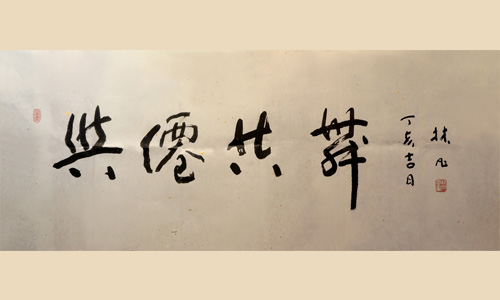 與僊共舞
丁亥吉日
林凡